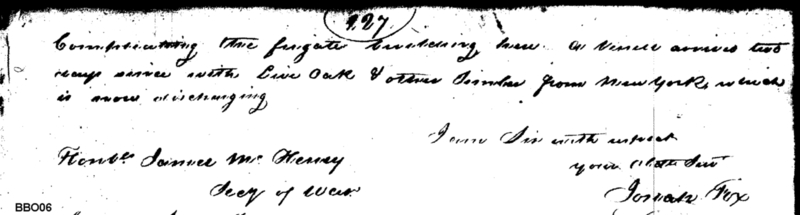 127
Completing the frigate building here. A Vessel arrived two
days since with Live Oak & other Timber from New York, which
is now discharging
I am Sir with respect
Honble James McHenry
your Obdt Servt
Secy of War
Josiah Fox
BBO06